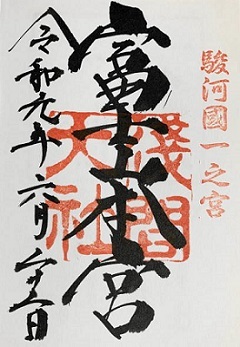 駿河國一之宮
富士本宮
淺間
大社
令和元年 六月 日